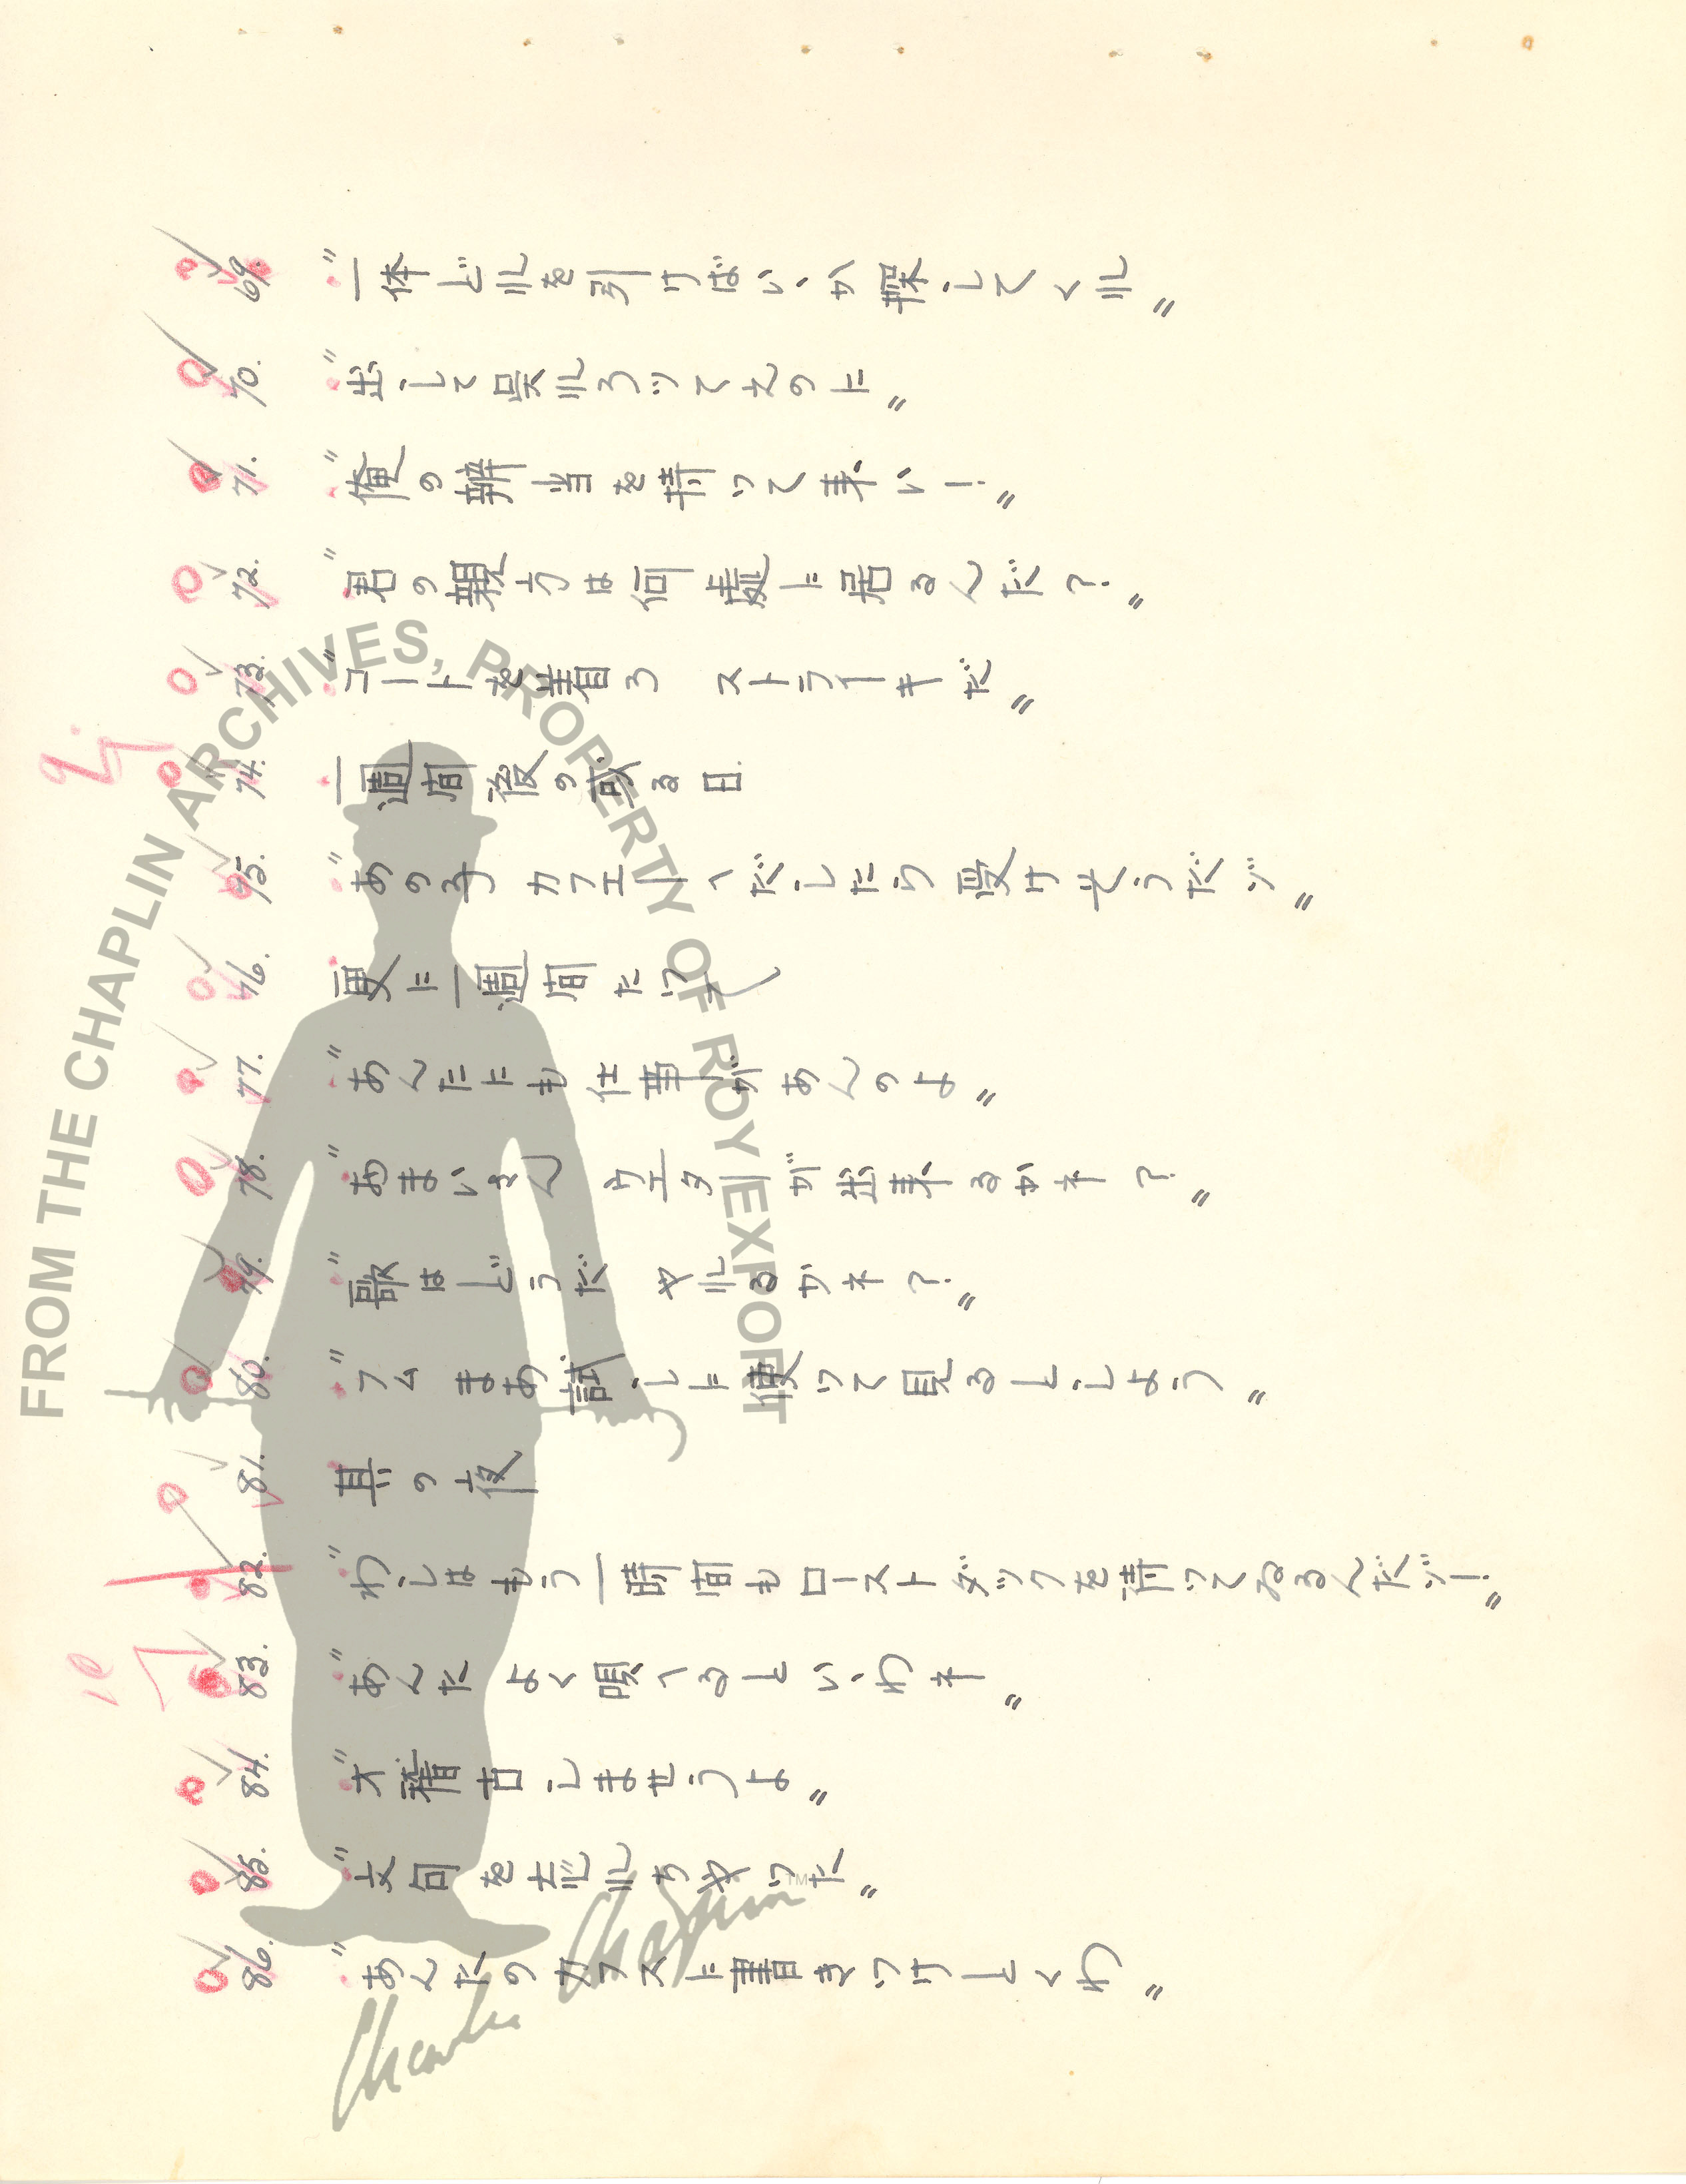 69. "一体どれを引けばいゝか探してくれ"
70. "出して呉れろッてえのに"
71. "俺の辨当を持って来い！"
72. "君の親方は何處に居るんだ？"
73. "コートを着ろ ストライキだ"
9.
74. 一週間後の或る日.
75. "あの子 カフエーへだしたら 受けそうだゾ"
76. 更に一週間たつて
77. "あんたにも仕事があんのよ"
78. "おまいさん ウエターが出来るかネ？"
79. "歌はどうだ やれるかネ？"
80. "フム まあ試しに使って見るとしよう"
81. 其の夜
82. "わしはもう一時間もローストダックを待ってゐるんだゾ！"
10
83. "あんた よく唄へるといゝわネ"
84. "オ稽古しませうよ"
85. "文句を忘れちやつた"
86. "あんたのカフスに書きつけとくわ"
FROM THE CHAPLIN ARCHIVES, PROPERTY OF ROY EXPORT
Charlie Chaplin
TM